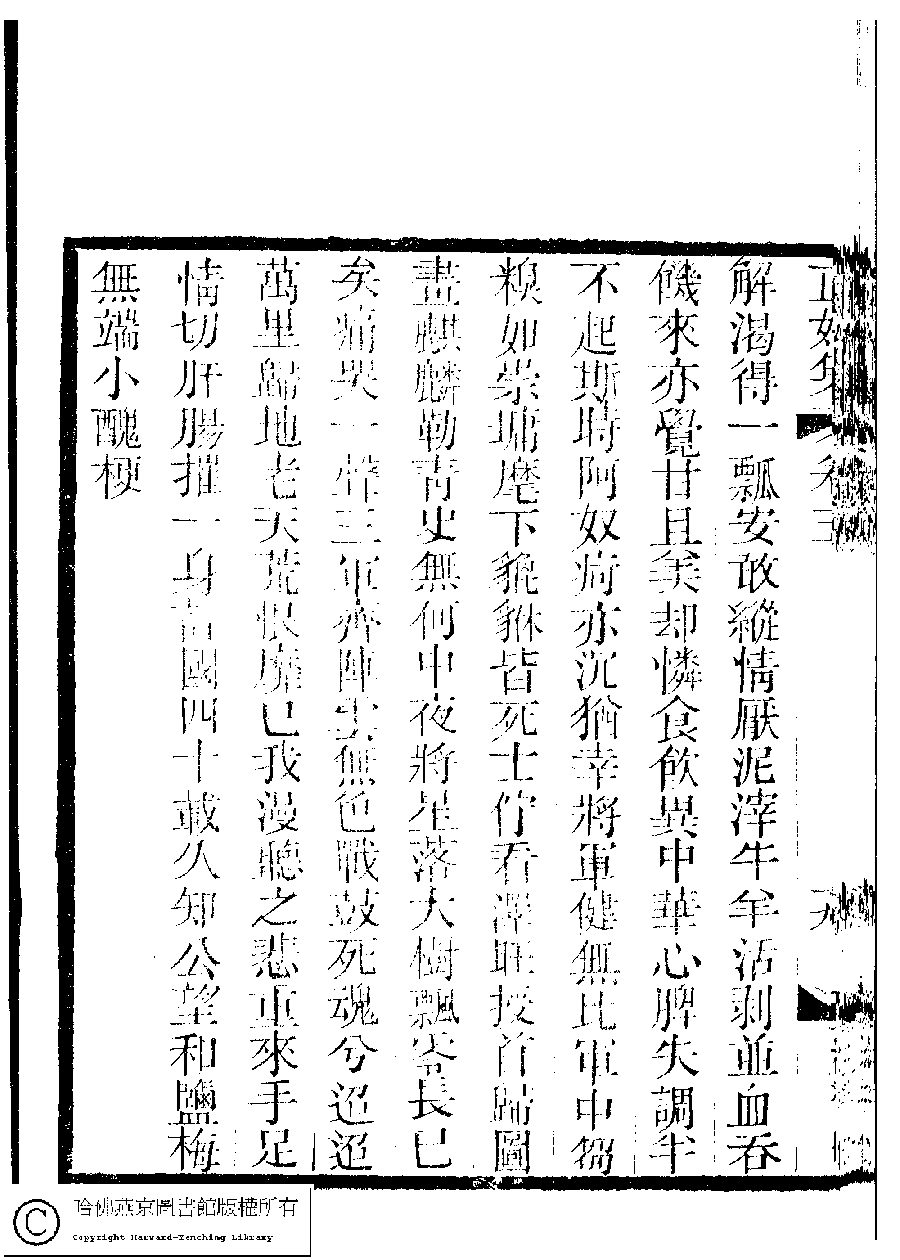 解渴得一瓢安敢縱情厭泥滓牛羊活剥並血吞
饑來亦覺甘且美却憐食飲異中華心脾失調半
不起斯時阿奴疴亦沉猶幸將軍健無比軍中芻
糗如崇墉麾下貔貅皆死士佇看渾邪授首歸圖
畫麒麟勒青史無何中夜將星落大樹飄零長已
矣痛哭一聲三軍齊陣雲無色戰鼓死魂兮迢迢
萬里歸地老天荒恨靡已我漫聽之悲重來手足
情切肝腸摧一身富國四十載久知公望和鹽梅
無端小醜梗
哈佛燕京圖書館版權所有
Copyright Harvard-Yenching Library